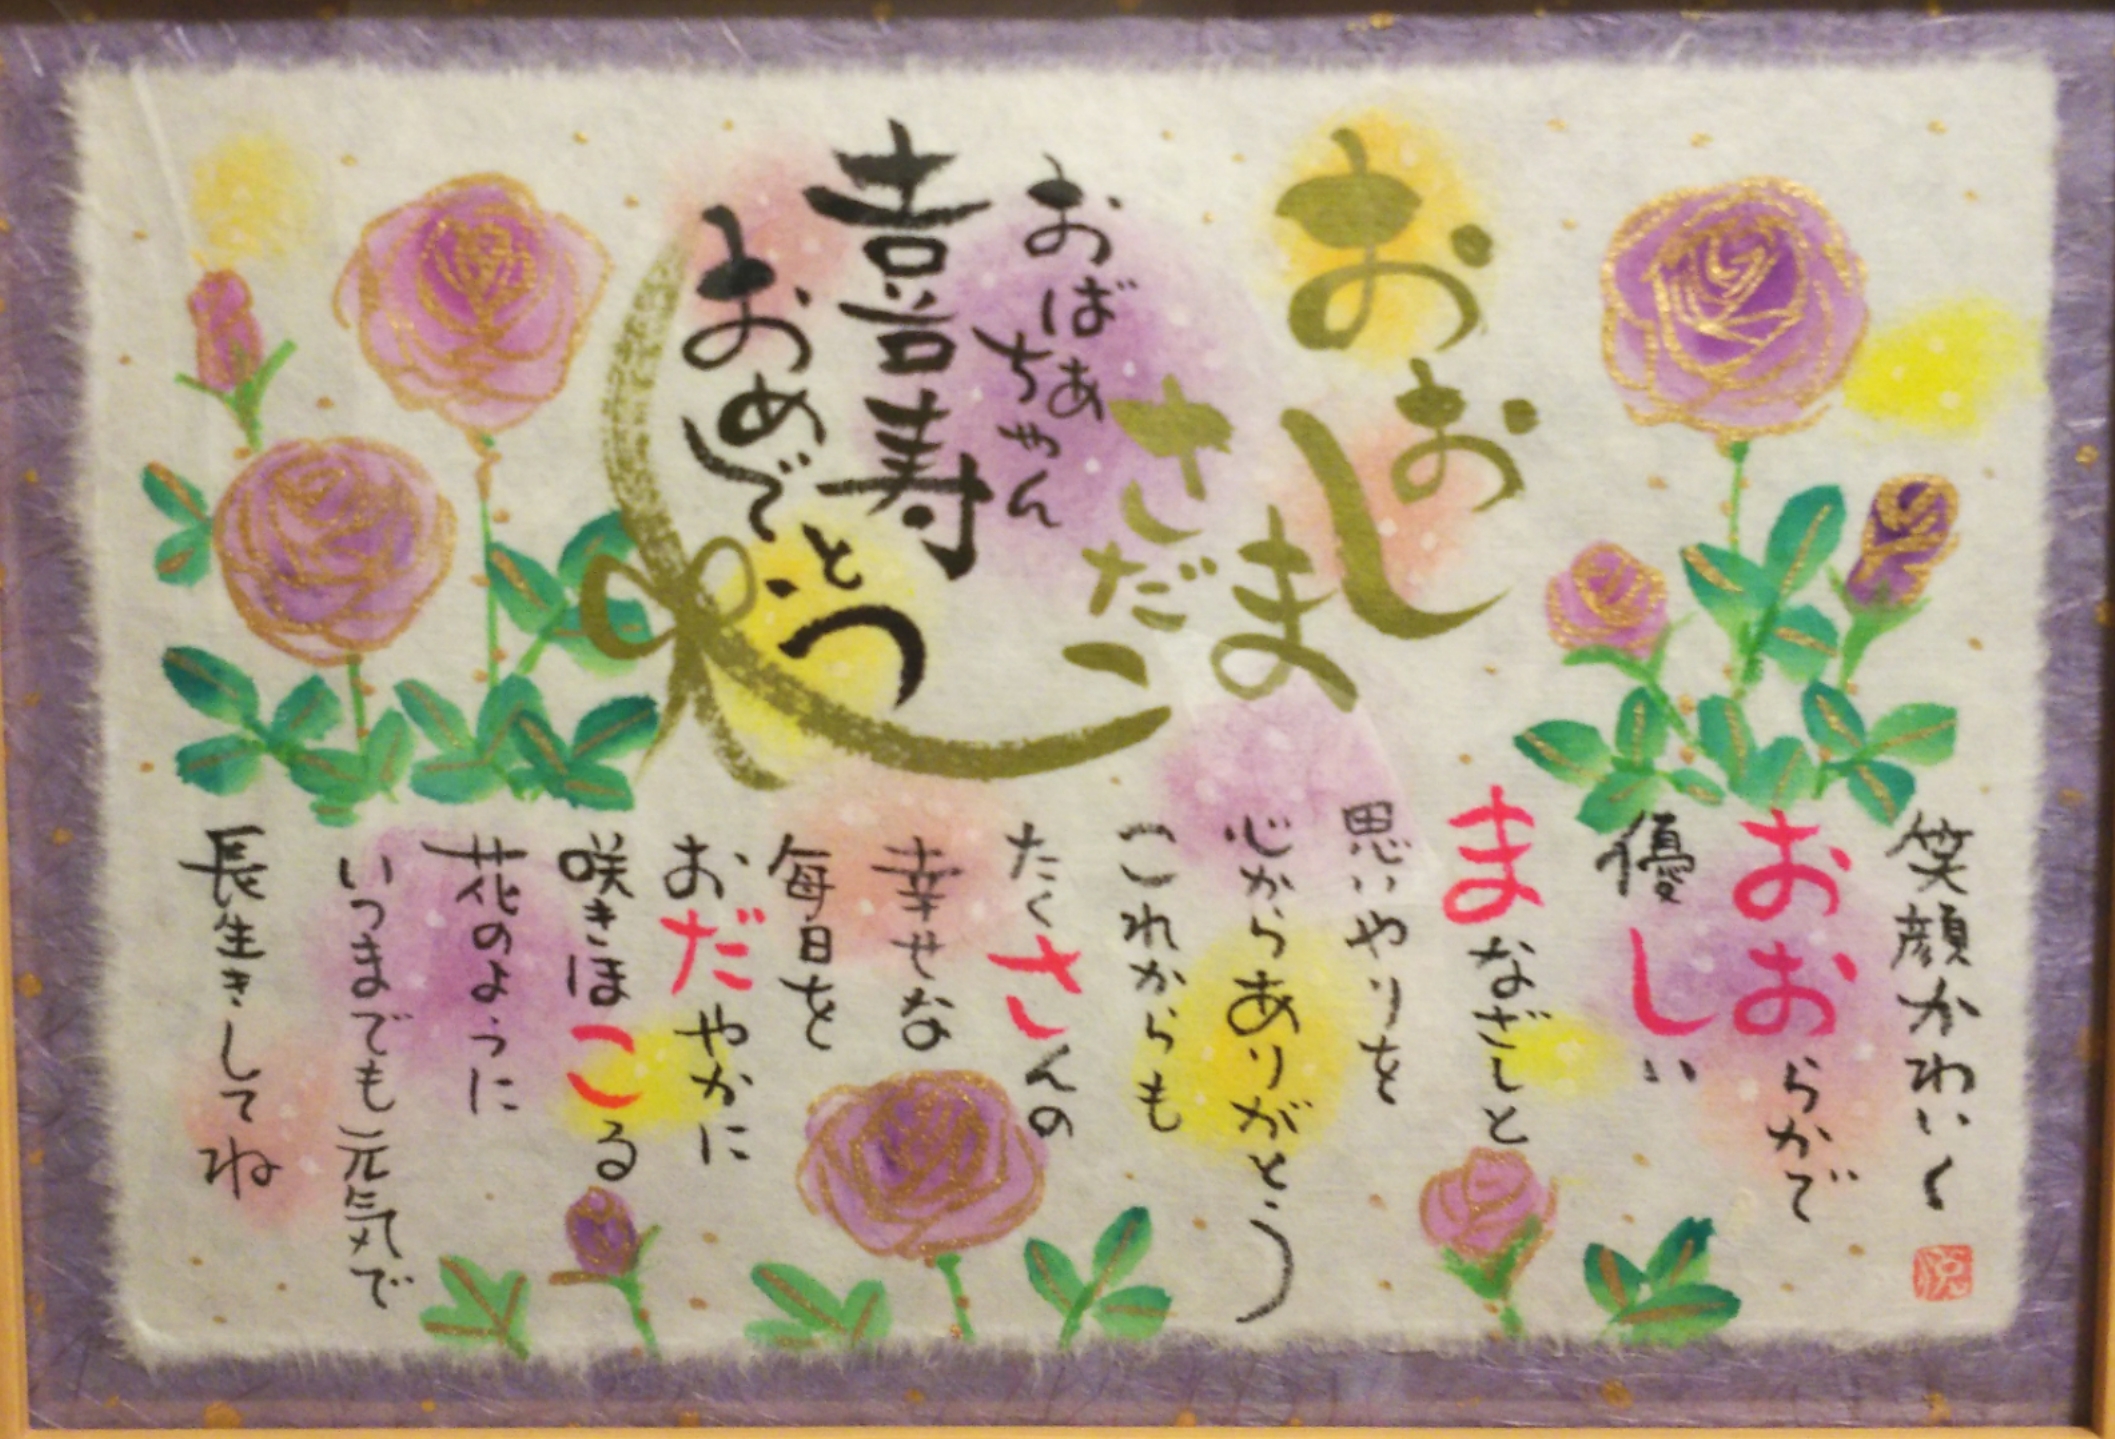 おおしま
さだこ
おばあちゃん
喜寿
おめでとう
笑顔かわいく
おおらかで
優しい
まなざしと
思いやりを
心からありがとう
これからも
たくさんの
幸せな
毎日を
おだやかに
咲きほこる
花のように
いつまでも元気で
長生きしてね